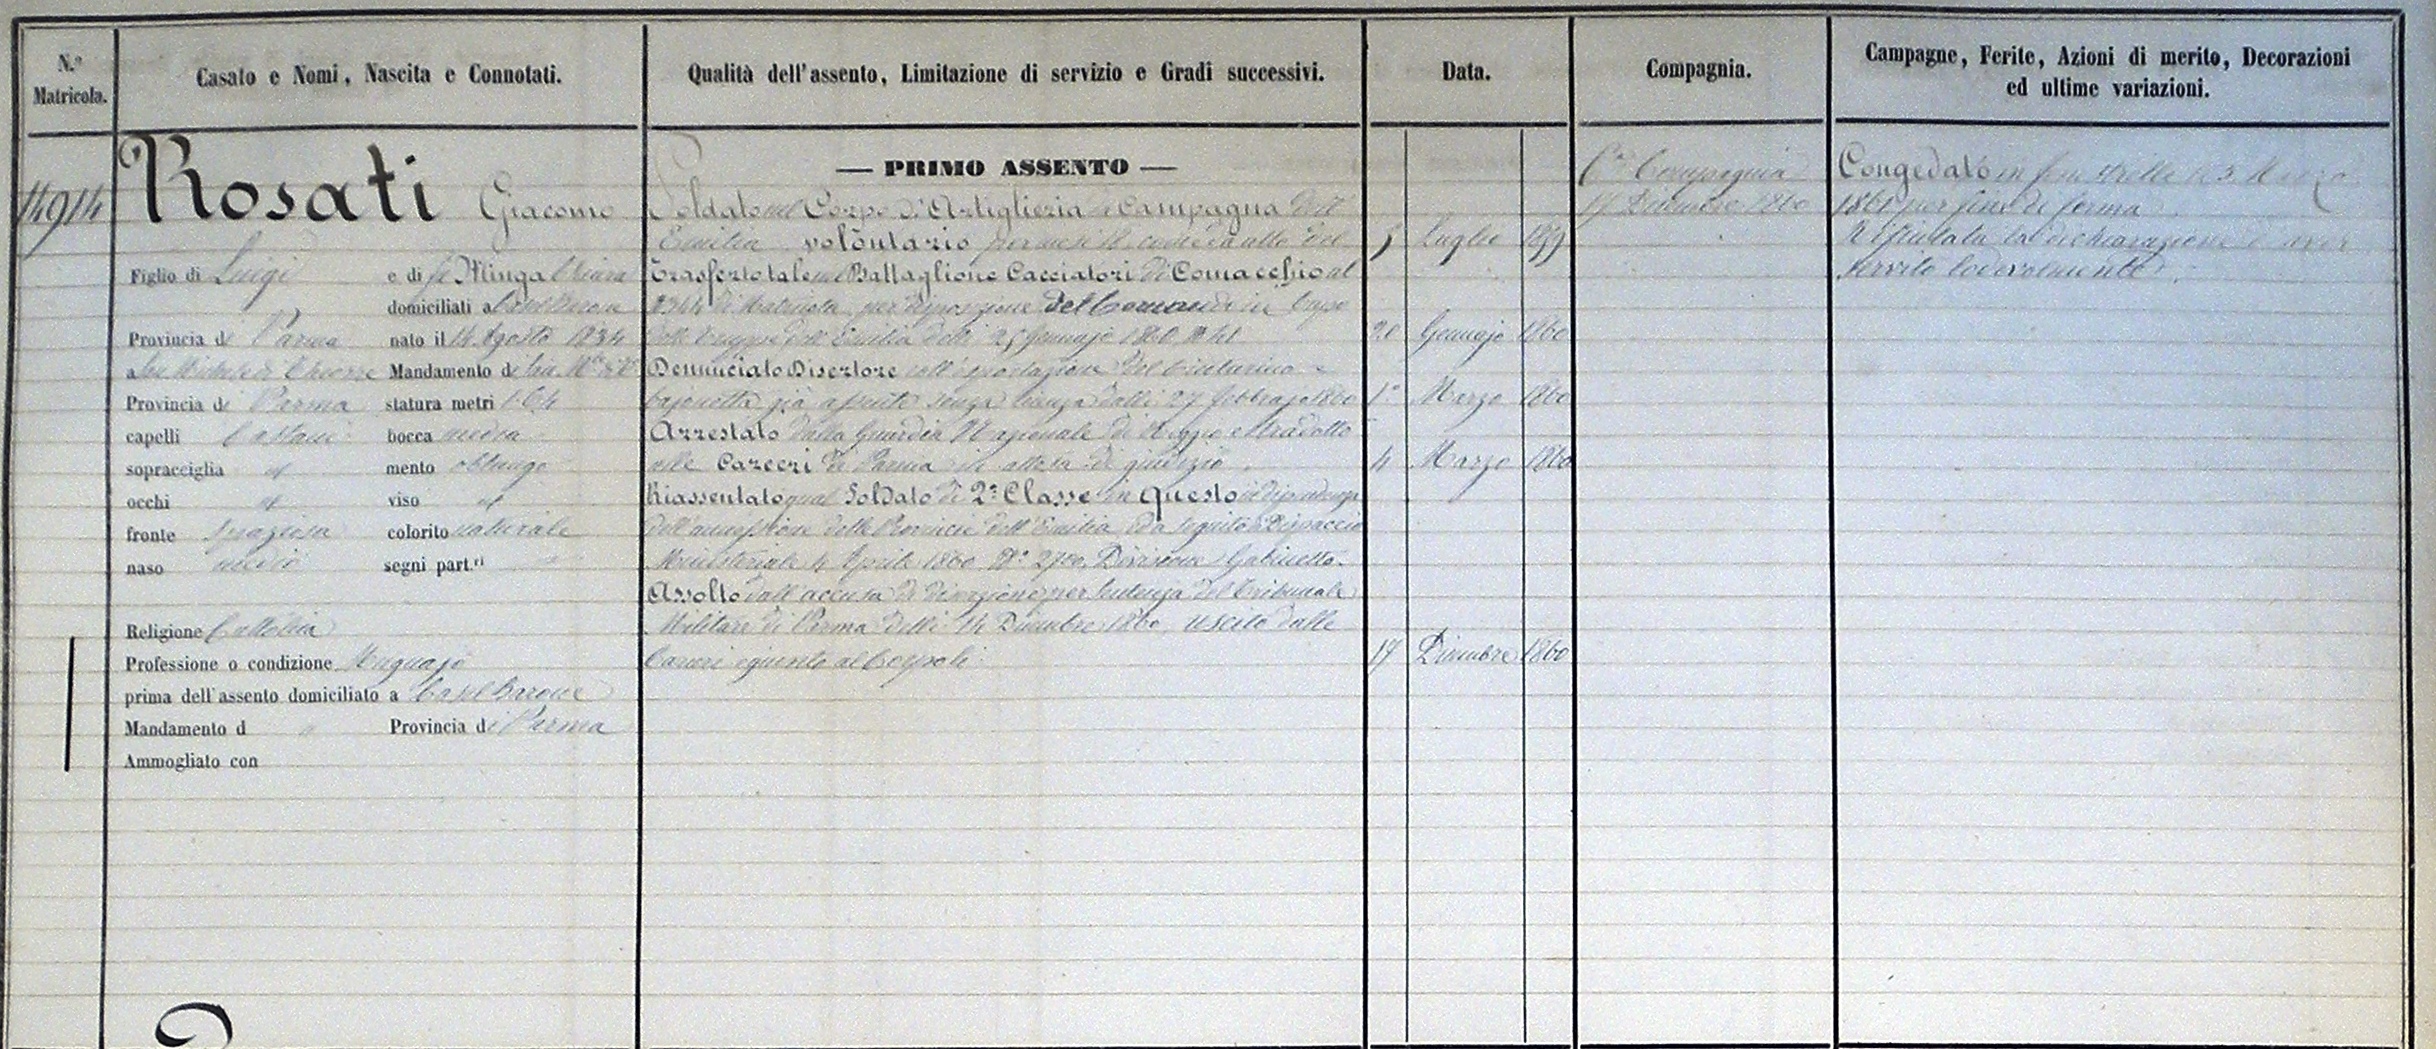 N.º Matricola.
Casato e Nomi, Nascita e Connotati.
Qualità dell'assento, Limitazione di servizio e Gradi successivi.
Data.
Compagnia.
Campagne, Ferite, Azioni di merito, Decorazioni
ed ultime variazioni.
14914
Rosati Giacomo
Figlio di Luigi e di fu Minga Chiara
domiciliati a Casel Barone
Provincia di Parma nato il 14 Agosto 1834
a San Michele di Mandamento di San
Provincia di Parma statura metri 1.64
capelli Castani bocca media
sopracciglia id mento oblungo
occhi id viso id
fronte spaziosa colorito naturale
naso medio segni part.ri "
Religione Cattolica
Professione o condizione Mugnajo
prima dell'assento domiciliato a Casel Barone
Mandamento d " Provincia di Parma
Ammogliato con
— PRIMO ASSENTO —
Soldato nel Corpo d'Artiglieria di Campagna dell'
Emilia volontario per mesi 18 come da atto del 5 Luglio 1859
Trasferto tale nel Battaglione Cacciatori di Comacchio al
di Matricola per disposizione del Comando in Capo
delle truppe dell'Emilia delli 25 Gennajo 1860 N° 41 20 Gennajo 1860
Denunciato Disertore coll'esportazione del cinturino e
bajonetta già assente senza licenza dalli 27 febbrajo 1860 1° Marzo 1860
Arrestato dalla Guardia Nazionale di Reggio e tradotto
alle Carceri di Parma in attesa di giudizio 4 Marzo 1860
Riassentato qual Soldato di 2ª Classe in questo in dipendenza
dell'annessione delle Provincie dell'Emilia ed a seguito di Dispaccio
Ministeriale 4 Aprile 1860 N° 2700 Divisione Gabinetto.
Assolto dall'accusa di diserzione per Sentenza del Tribunale
Militare di Parma delli 14 Dicembre 1860, uscito dalle
Carceri e giunto al Corpo li 17 Dicembre 1860
Compagnia
17 Dicembre 1860
Congedato in Fenestrelle li 5 Marzo
1861 per fine di ferma
Rifiutata la dichiarazione d'aver
servito lodevolmente